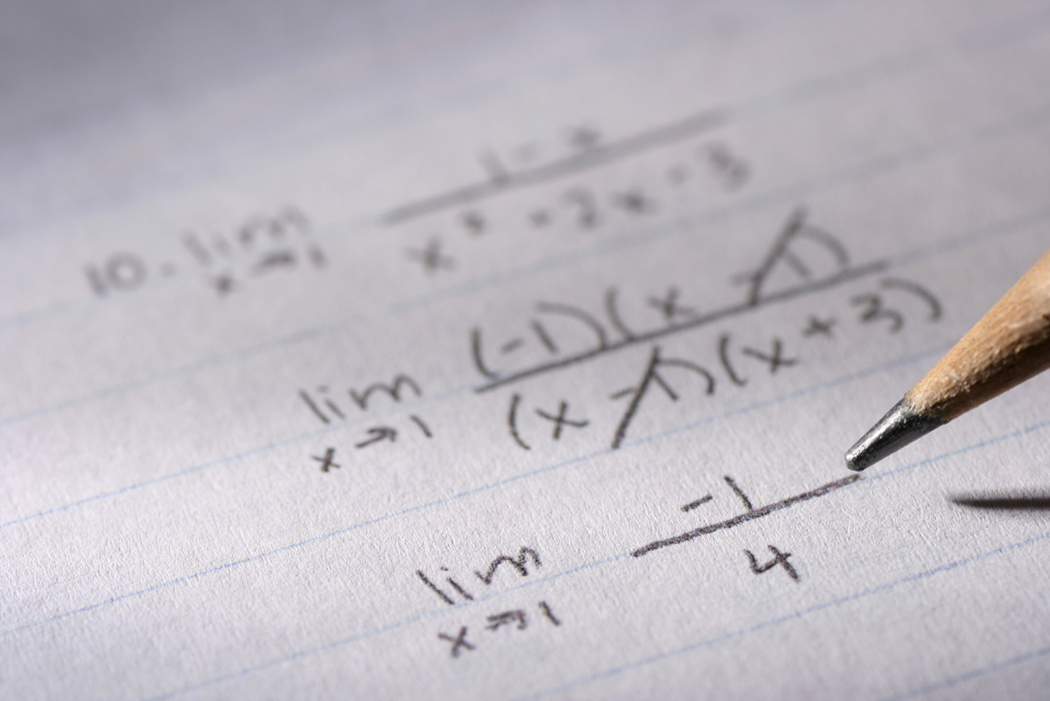 10. lim x→1 (1 - x)/(x² + 2x - 3)
lim x→1 ((-1)(x - 1))/((x - 1)(x + 3))
lim x→1 -1/4